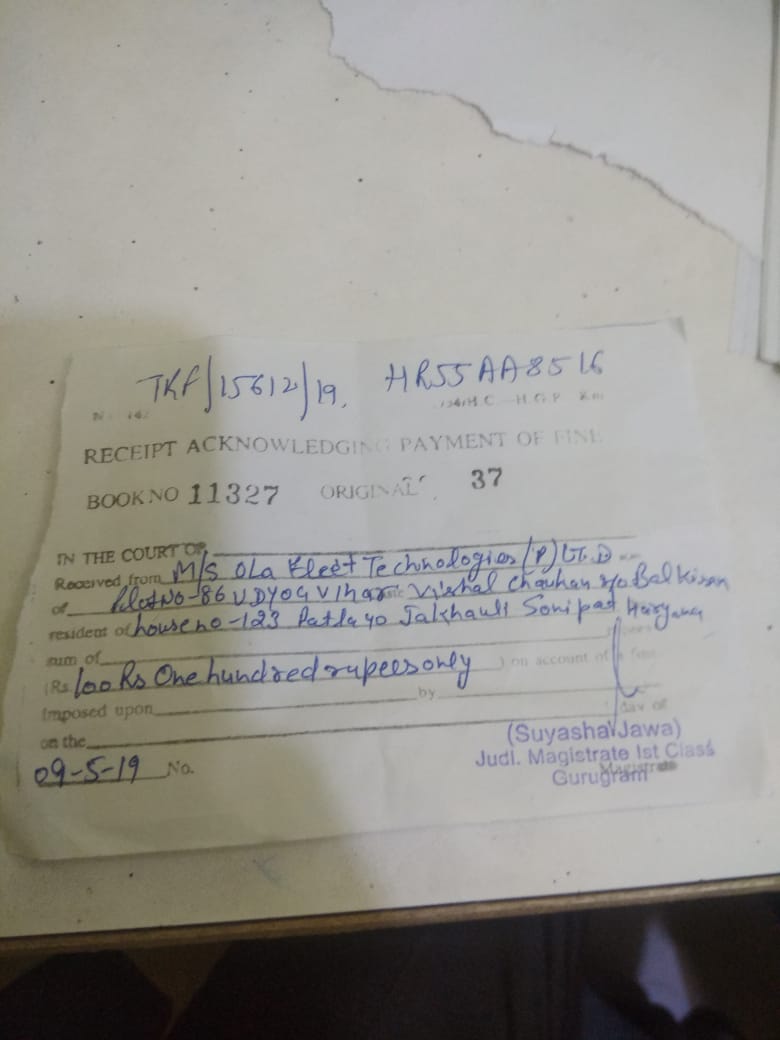 TRF/15612/19. HR55AA8516
RECEIPT ACKNOWLEDGING PAYMENT OF FINE
BOOK NO 11327 ORIGINAL 37
IN THE COURT OF
Received from M/S OLa Fleet Technologies (P) Lt.D
of Plot NO-86 UDYOG VIhar Vishal Chauhan S/o Bal Kisan
resident of house no-123 Patla Jakhauli Sonipat Haryana
sum of
(Rs. 100 Rs One hundred rupees only ) on account of a fine
imposed upon by
on the day of
09-5-19 No.
(Suyasha Jawa)
Judl. Magistrate Ist Class
Gurugram
Magistrate